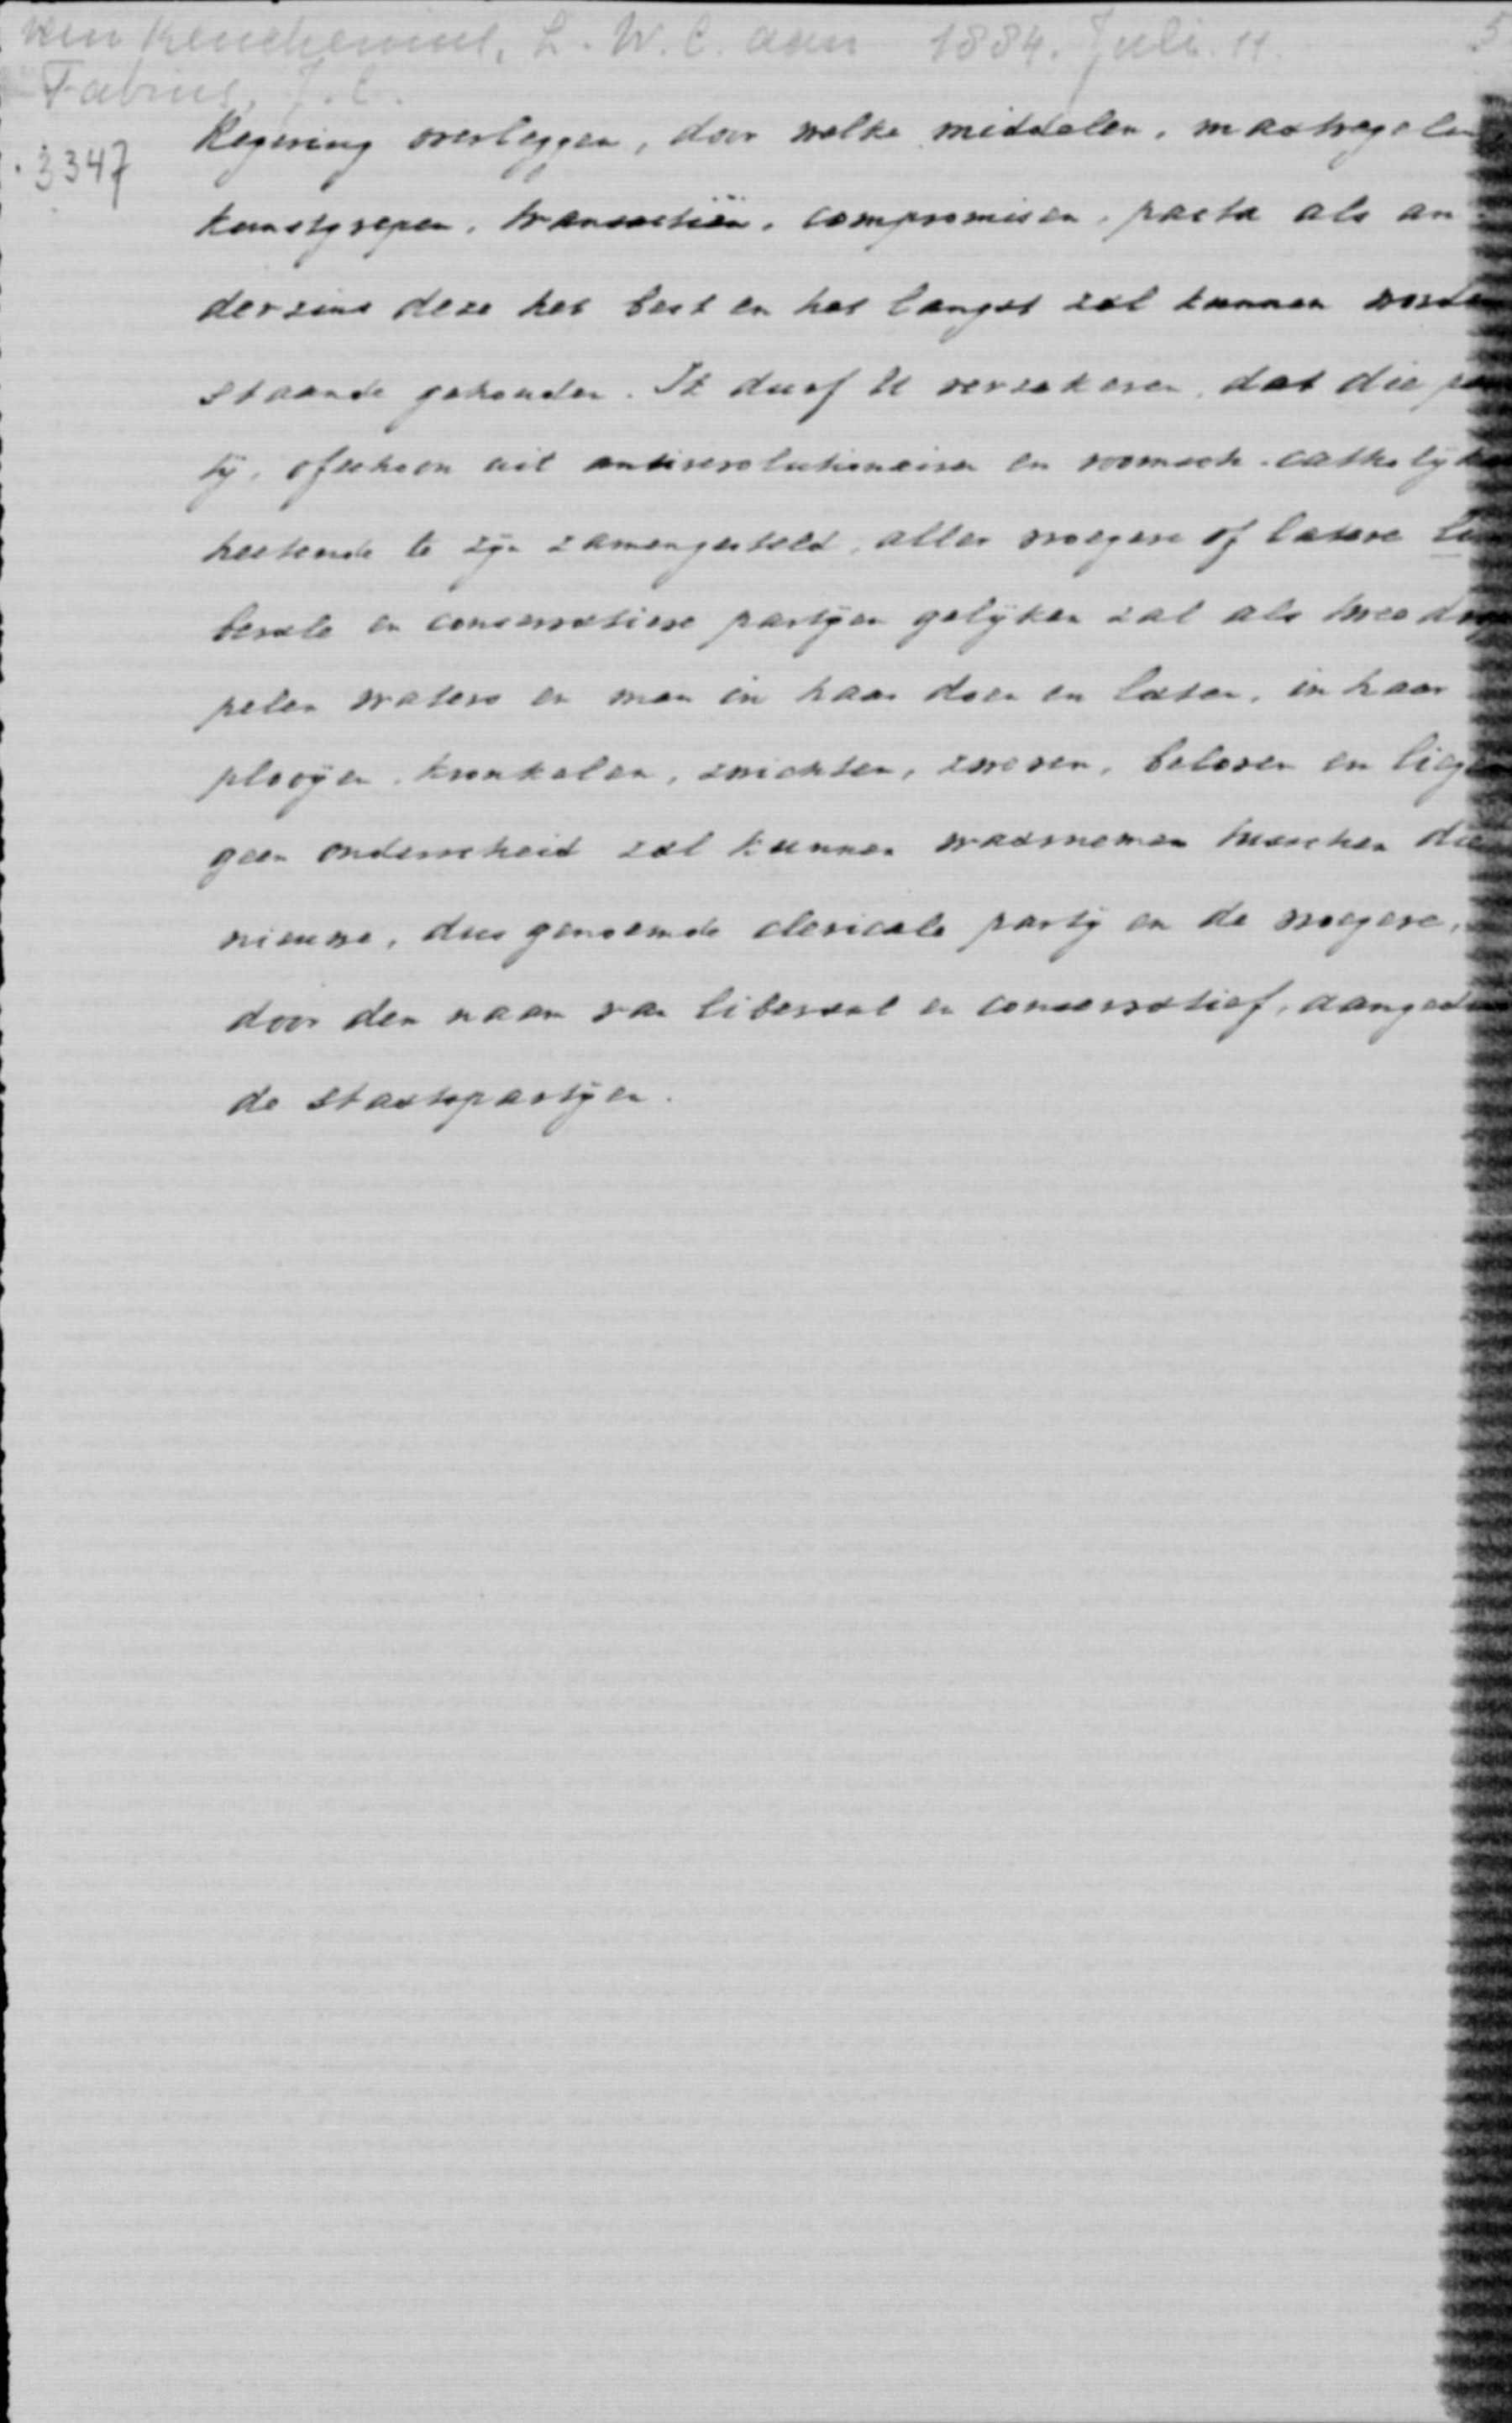 van Keuchenius, L. W. C. aan 1884. Juli. 11. 5
Fabius, J. C.
. 3347
Regering overleggen, door welke middelen, maatregelen
kunstgrepen, transactiën, compromisen, pacta als an-
derzins deze het best en het langst zal kunnen worden
staande gehouden. Ik durf U verzekeren, dat die par
tÿ, ofschoon uit antirevolutionairen en roomsch-catholÿken
heetende te zÿn zamengesteld, aller vroegere of latere li
berale en conservatieve partÿen gelÿken zal als twee drop
pelen waters en men in haar doen en laten, in haar
plooÿen, kronkelen, zwichten, zweren, beloven en liegen
geen onderscheid zal kunnen waarnemen tusschen die
nieuwe, dus genoemde clericale partÿ en de vroegere,
door den naam van liberaal en conservatief, aangedui
de staatspartÿen.